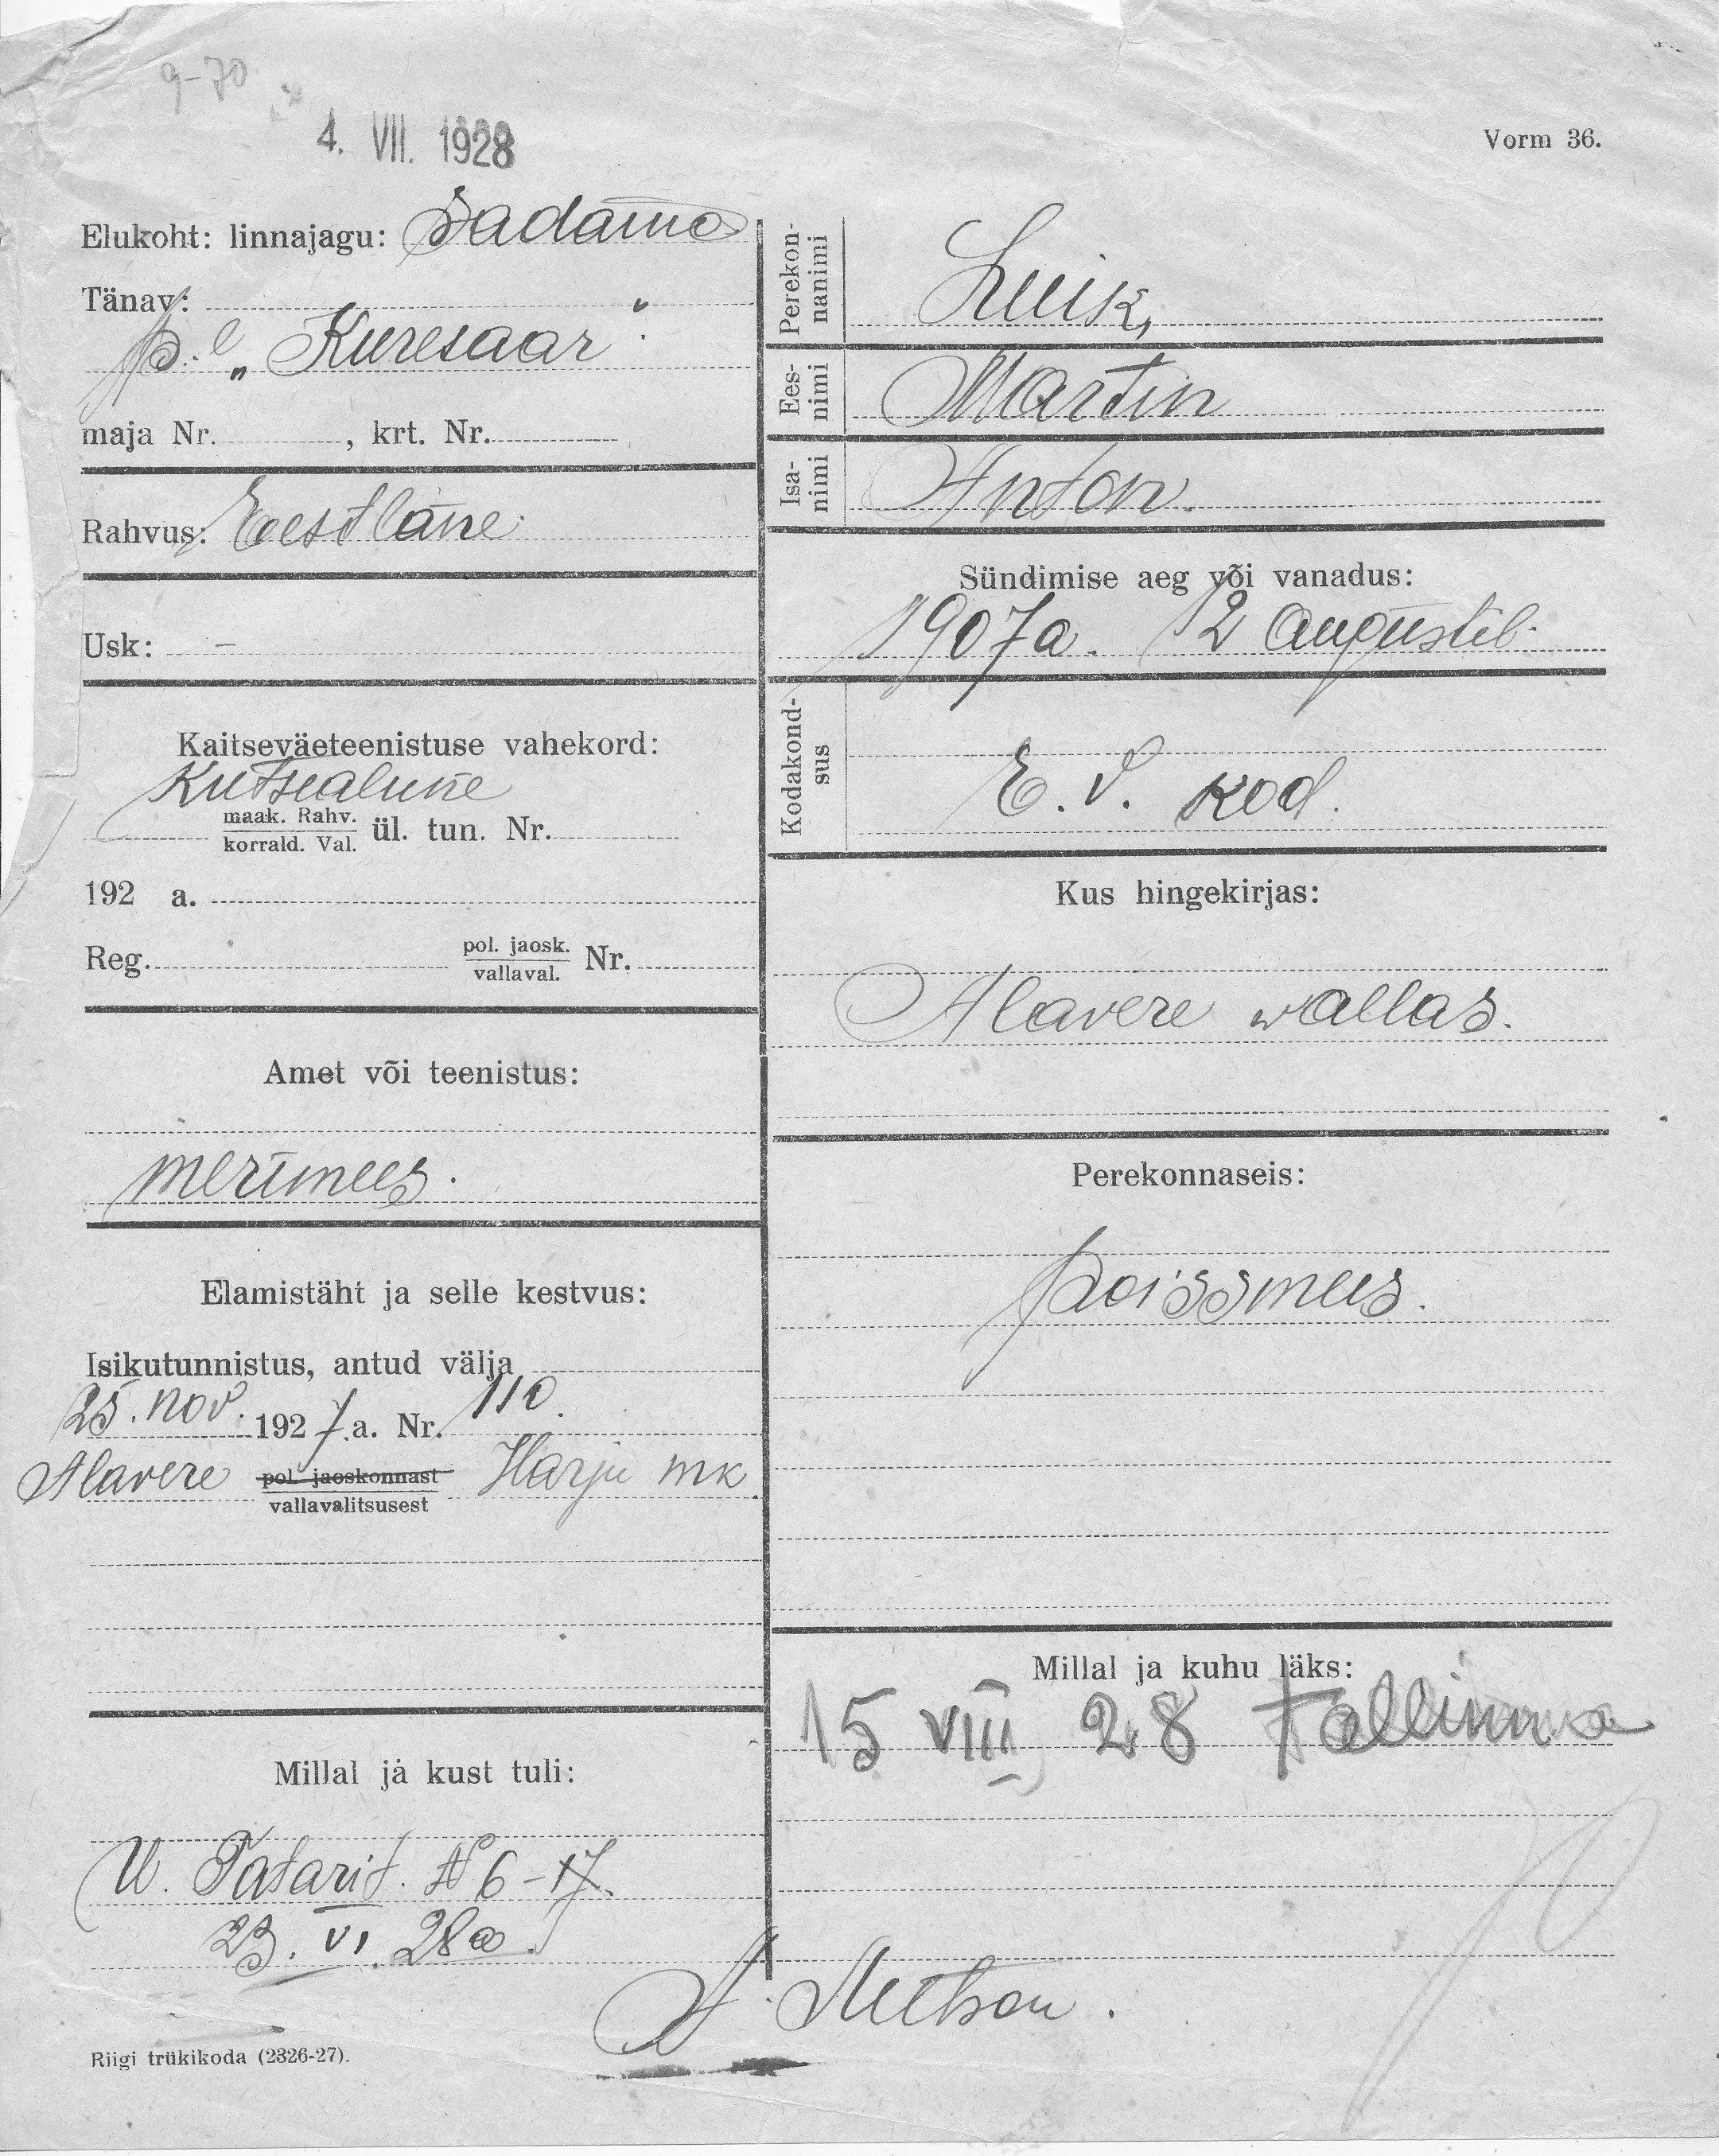 9-70
4. VII. 1928
Vorm 36.
Elukoht: linnajagu: Sadama
Tänav:
p.l „Kuresaar".
maja Nr. , krt. Nr.
Rahvus: Eestlane
Usk: –
Kaitseväeteenistuse vahekord:
Kutsealune
maak. Rahv.
korrald. Val. ül. tun. Nr.
192 a.
Reg. pol. jaosk.
vallaval. Nr.
Amet või teenistus:
merimees.
Elamistäht ja selle kestvus:
Isikutunnistus, antud välja
25. nov. 1927.a. Nr. 110.
Alavere pol. jaoskonnast Harju mk.
vallavalitsusest
Millal ja kust tuli:
W. Tatari t. № 6-17.
23. VI. 28a.
Perekon-
nanimi Luik,
Ees-
nimi Martin
Isa-
nimi Anton.
Sündimise aeg või vanadus:
1907a. 12 augustil.
Kodakond-
sus E.V. kod.
Kus hingekirjas:
Alavere wallas.
Perekonnaseis:
poissmees.
Millal ja kuhu läks:
15 VIII 28 Tallinna
Riigi trükikoda (2326-27).